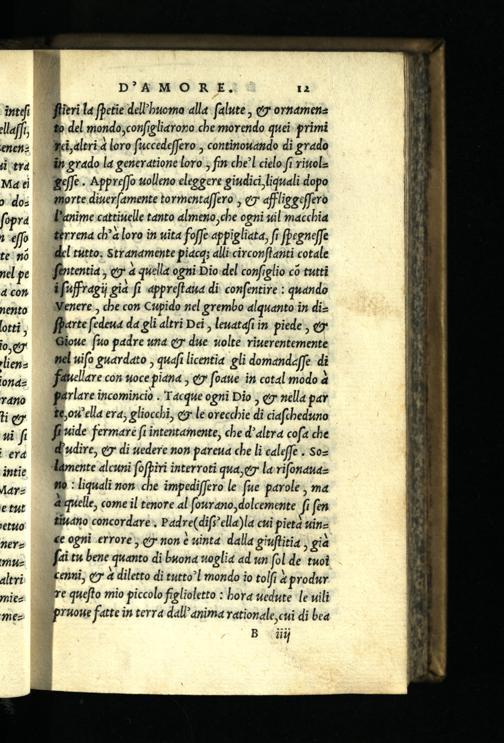 D'AMORE. 12
stieri la spetie dell'huomo alla salute, & ornamen=
to del mondo, consigliarono che morendo quei primi
rei, altri à loro succedessero, continouando di grado
in grado la generatione loro, fin che'l cielo si riuol=
gesse. Appresso uolleno eleggere giudici, liquali dopo
morte diuersamente tormentassero, & affliggessero
l'anime cattiuelle tanto almeno, che ogni uil macchia
terrena ch'à loro in uita fosse appigliata, si spegnesse
del tutto. Stranamente piacq; alli circonstanti cotale
sententia, & à quella ogni Dio del consiglio cō tutti
i suffragij già si apprestaua di consentire: quando
Venere, che con Cupido nel grembo alquanto in di=
sparte sedeua da gli altri Dei, leuatasi in piede, &
Gioue suo padre una & due uolte riuerentemente
nel uiso guardato, quasi licentia gli domandasse di
fauellare con uoce piana, & soaue in cotal modo à
parlare incominciò. Tacque ogni Dio, & nella par
te, ou'ella era; gliocchi, & le orecchie di ciascheduno
si uide fermare sì intentamente, che d'altra cosa che
d'udire, & di uedere non pareua che li calesse. So=
lamente alcuni sospiri interroti qua, & la risonaua=
no: liquali non che impedissero le sue parole, ma
à quelle, come il tenore al sourano, dolcemente si sen
tiuano concordare. Padre (diss'ella) la cui pietà uin=
ce ogni errore, & non è uinta dalla giustitia, già
sai tu bene quanto di buona uoglia ad un sol de tuoi
cenni, & à diletto di tutto'l mondo io tolsi à produr
re questo mio piccolo figlioletto: hora uedute le uili
pruoue fatte in terra dall'anima rationale, cui di bea
B iiij
intesi
ellassi,
enen=
ui tra
Ma ei
o do=
sopra
n esso
te nō
nel pe
a con
mento
lotti,
io, &
glien=
iona=
rano
sti &
ui si
i era
intie
Mar=
e tut
petuo
ner=
emu=
altri
mie=
me=